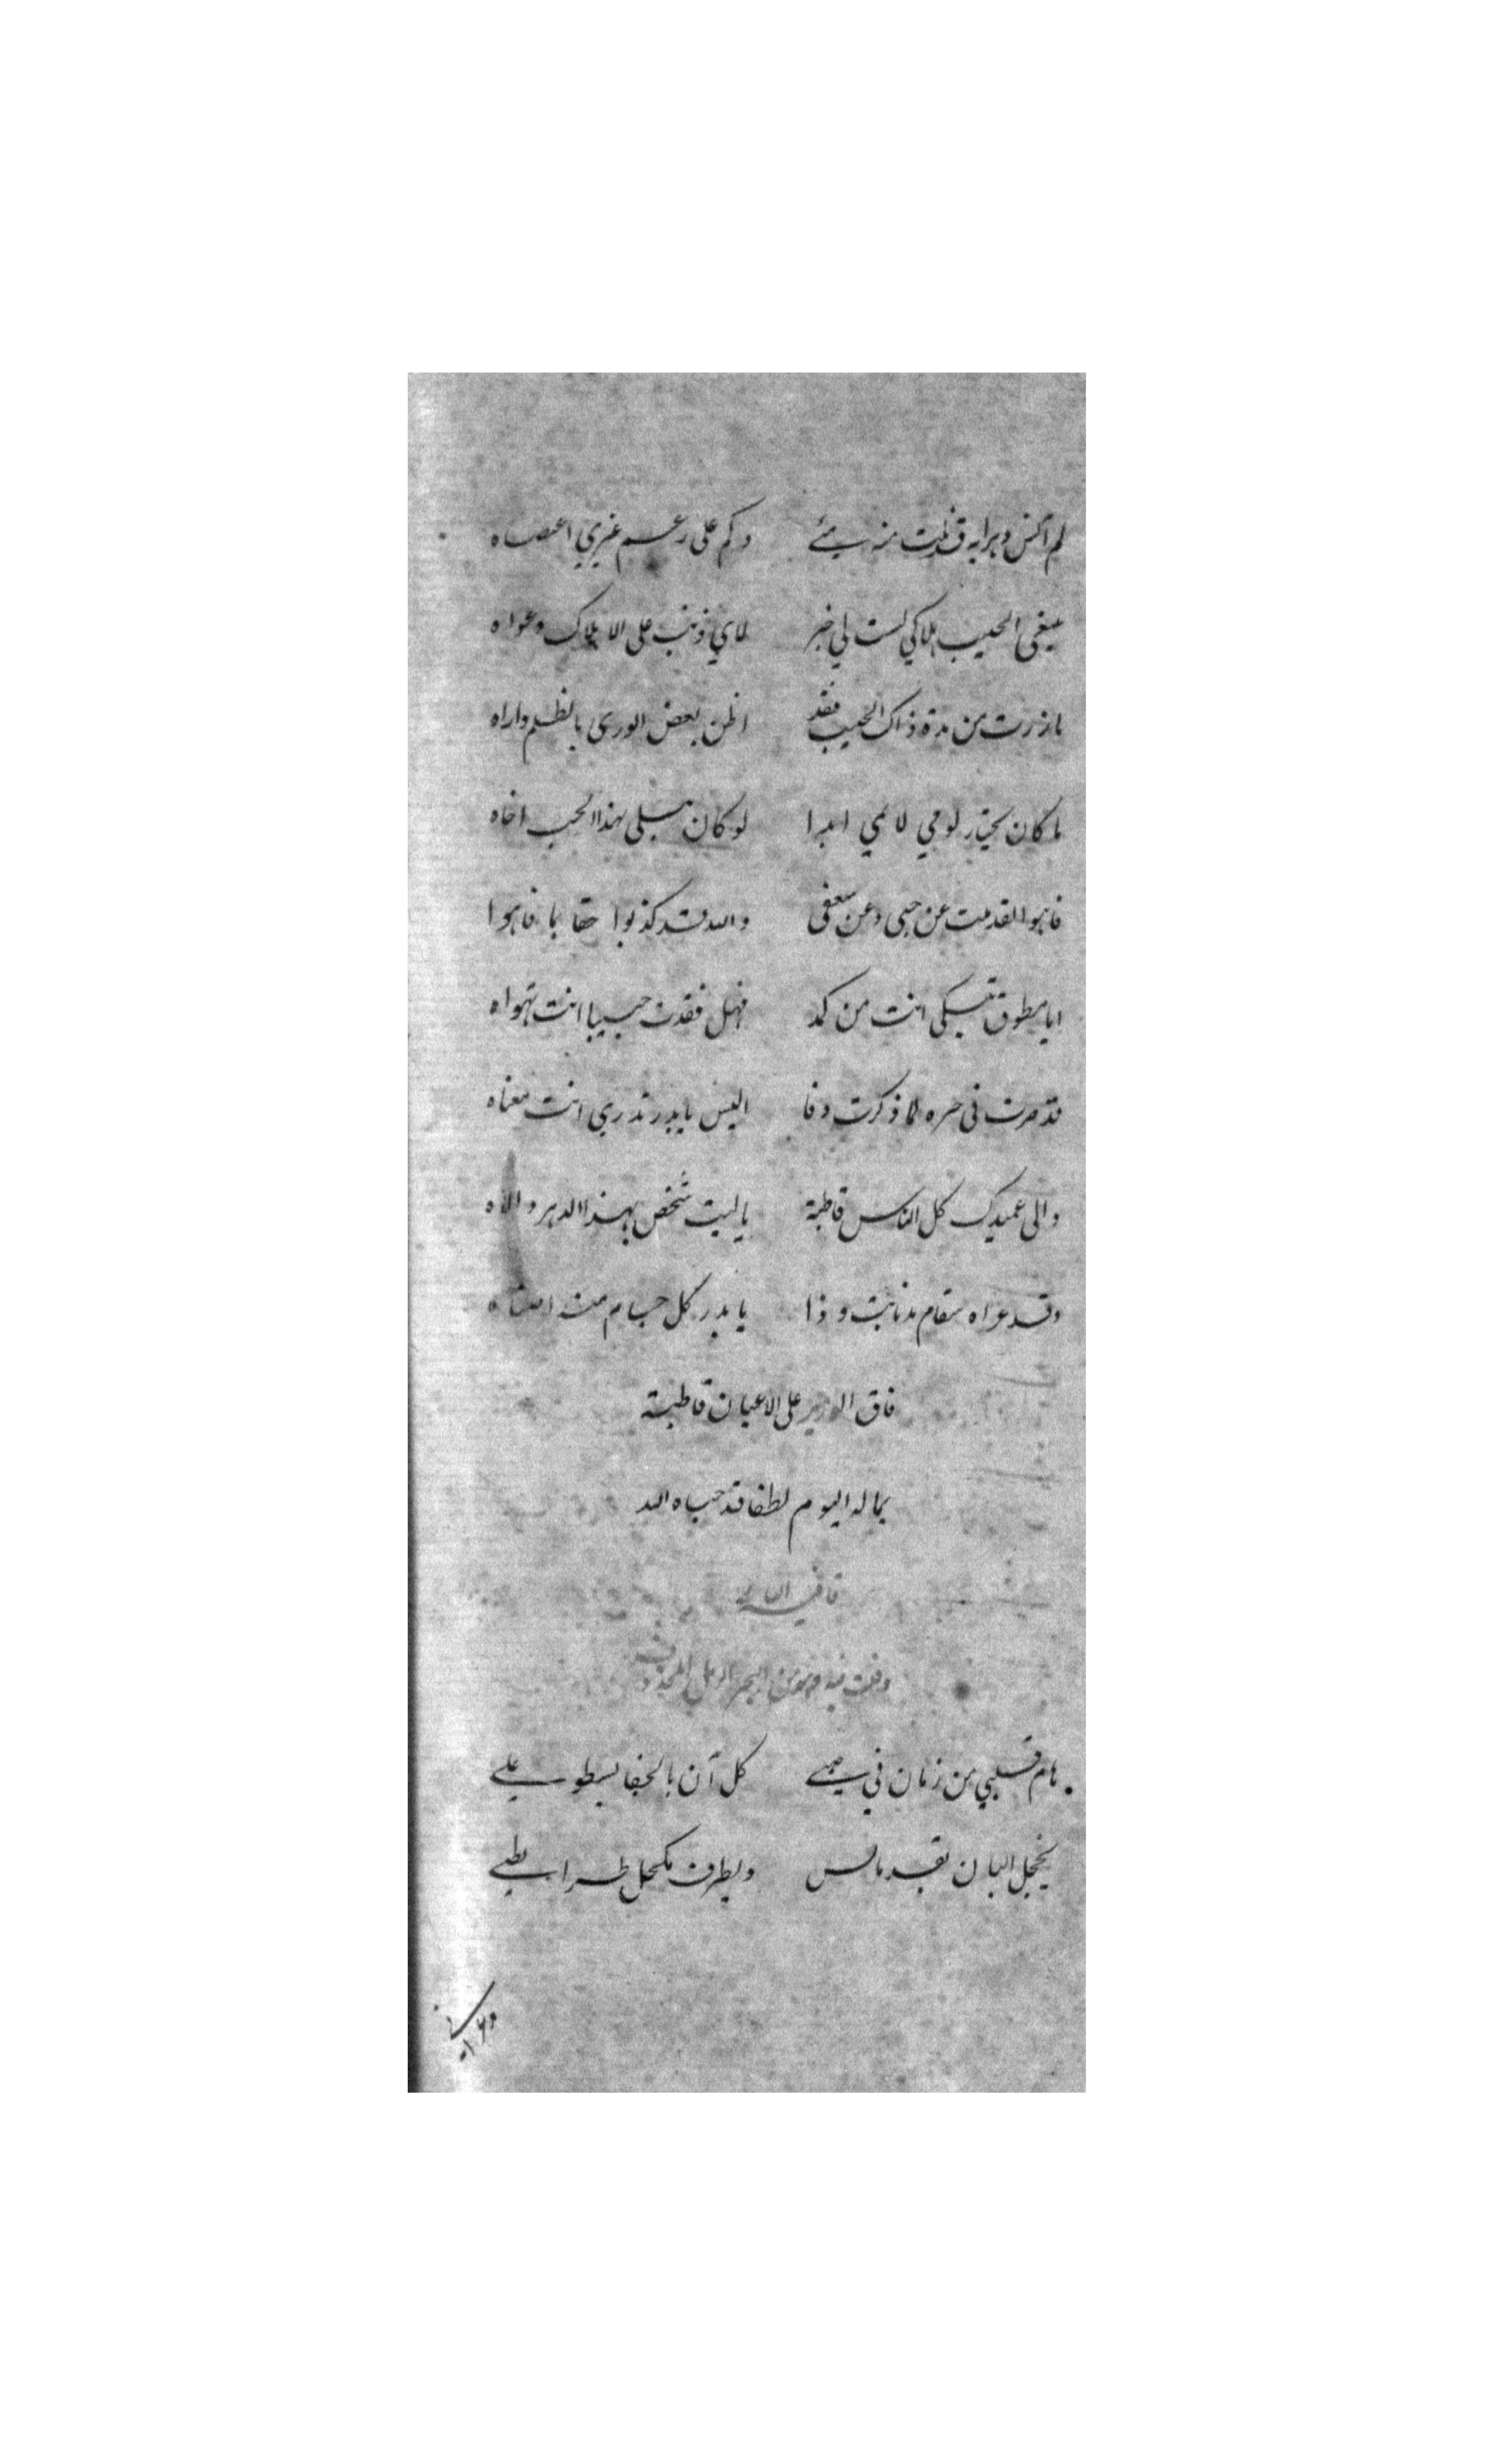 لم انس دهرا به قد نلت منه وكم على رغم غيري اعصاه
يبغي الحبيب هلاكي لست لي خبر لاي ذنب على الاهلاك دعواه
ما زرت من مدة ذاك الحبيب فقد اظن بعض الورى بالظلم واراه
ما كان يختار لومي لائمي ابدا لو كان مبلى بهذا الحب اخاه
فاهوا لقد مت عن حبي وعن شعفي والله قد كذبوا حقا بما فاهوا
ايا مطوق تبكي انت من كمد فهل فقدت حبيبا انت تهواه
قد صرت في حسره لما ذكرت وفا اليس يا بدر تدري انت معناه
والى عميدك كل الناس قاطبة يا ليت شخص بهذا الدهر والاه
وقد عراه سقام مذ نايت وذا يا بدر كل حسام منه امضاه
فاق الوزير على الاعيان قاطبة
بما له اليوم لطفا قد حباه الله
قافية الياء
وقلت فيه وهو من البحر الرمل المحذوف
هام قلبي من زمان في كل آن بالجفا يسطو علي
يخجل البان بقد مائس وبطرف مكحل طرا